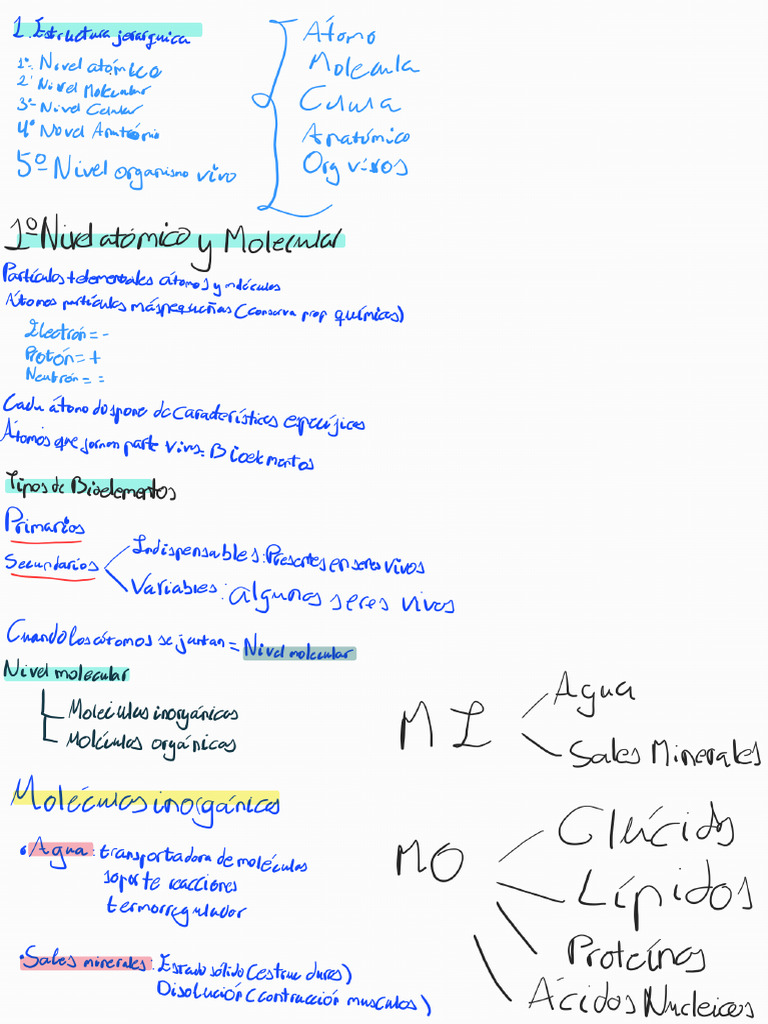 1. Estructura jerarquica
1º Nivel atómico
2º Nivel Molecular
3º Nivel Celular
4º Nivel Anatómio
5º Nivel organismo vivo
Átomo
Molecula
Celula
Anatómico
Org vivos
1º Nivel atómico y Molecular
Partículas + elementales átomos y moléculas
Átomos partículas más pequeñas (conserva prop químicas)
Electrón = -
Protón = +
Neutrón = =
Cada átomo dispone de características específicas
Átomos que forman parte vivos = Bioelementos
Tipos de Bioelementos
Primarios
Secundarios
Indispensables: Presentes en seres vivos
Variables: algunos seres vivos
Cuando los átomos se juntan = Nivel molecular
Nivel molecular
Moléculas inorgánicas
Moléculas orgánicas
MI
Agua
Sales Minerales
Moléculas inorgánicas
• Agua: transportadora de moléculas
soporte reacciones
termorregulador
MO
Glúcidos
Lípidos
Proteínas
Ácidos Nucleicos
• Sales minerales: Estado sólido (estruc duras)
Disolución (contracción musculos)